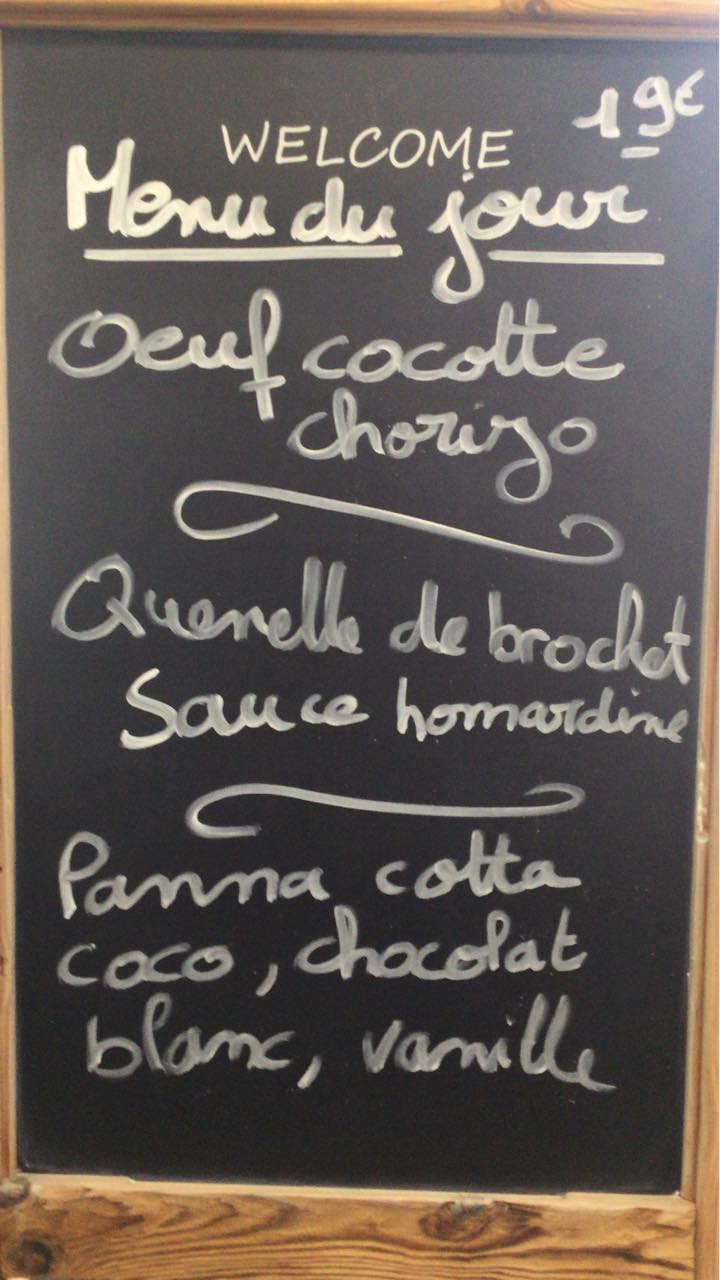 19€
WELCOME
Menu du jour
Oeuf cocotte
chorizo
Quenelle de brochet
Sauce homardine
Panna cotta
coco, chocolat
blanc, vanille